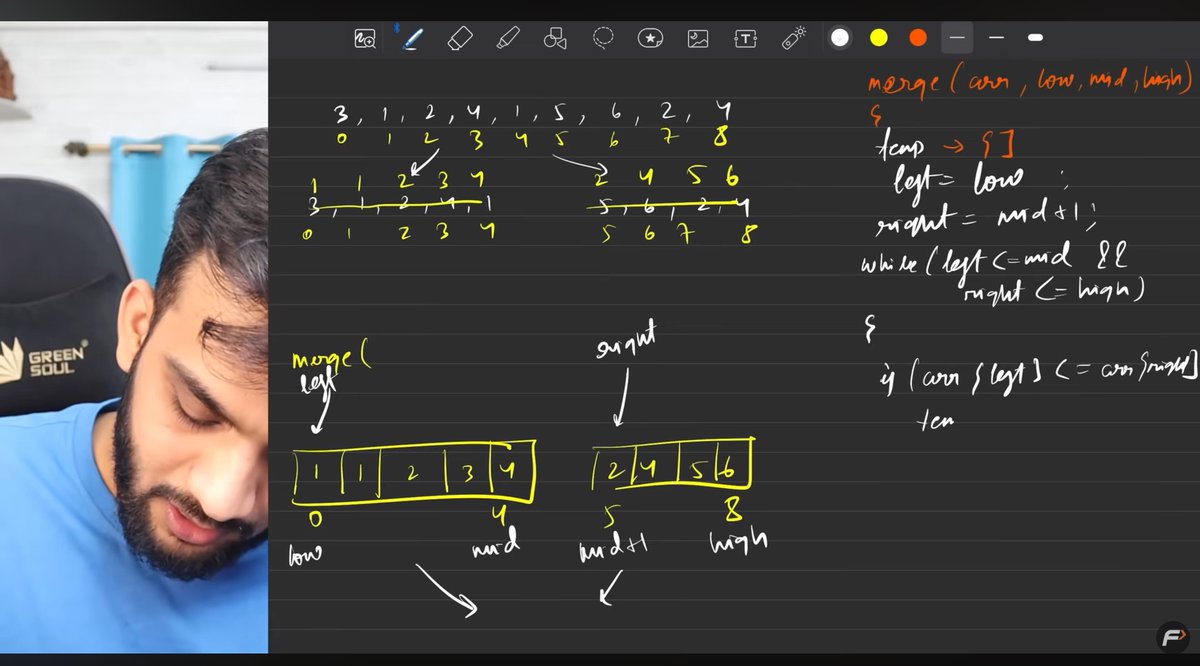 GREEN
SOUL
3, 1, 2, 4, 1, 5, 6, 2, 4
0 1 2 3 4 5 6 7 8
1 1 2 3 4
3, 1, 2, 4, 1
0 1 2 3 4
2 4 5 6
5, 6, 2, 4
5 6 7 8
merge(
left
right
1 1 2 3 4
2 4 5 6
0 4
5 8
low mid mid+1 high
merge(arr, low, mid, high)
{
temp → []
left = low ;
right = mid+1;
while(left <= mid &&
right <= high)
{
if (arr[left] <= arr[right]
tem